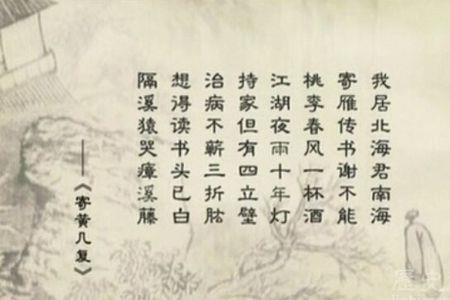 我居北海君南海
寄雁传书谢不能
桃李春风一杯酒
江湖夜雨十年灯
持家但有四立壁
治病不蕲三折肱
想得读书头已白
隔溪猿哭瘴溪藤
——《寄黄几复》
历史